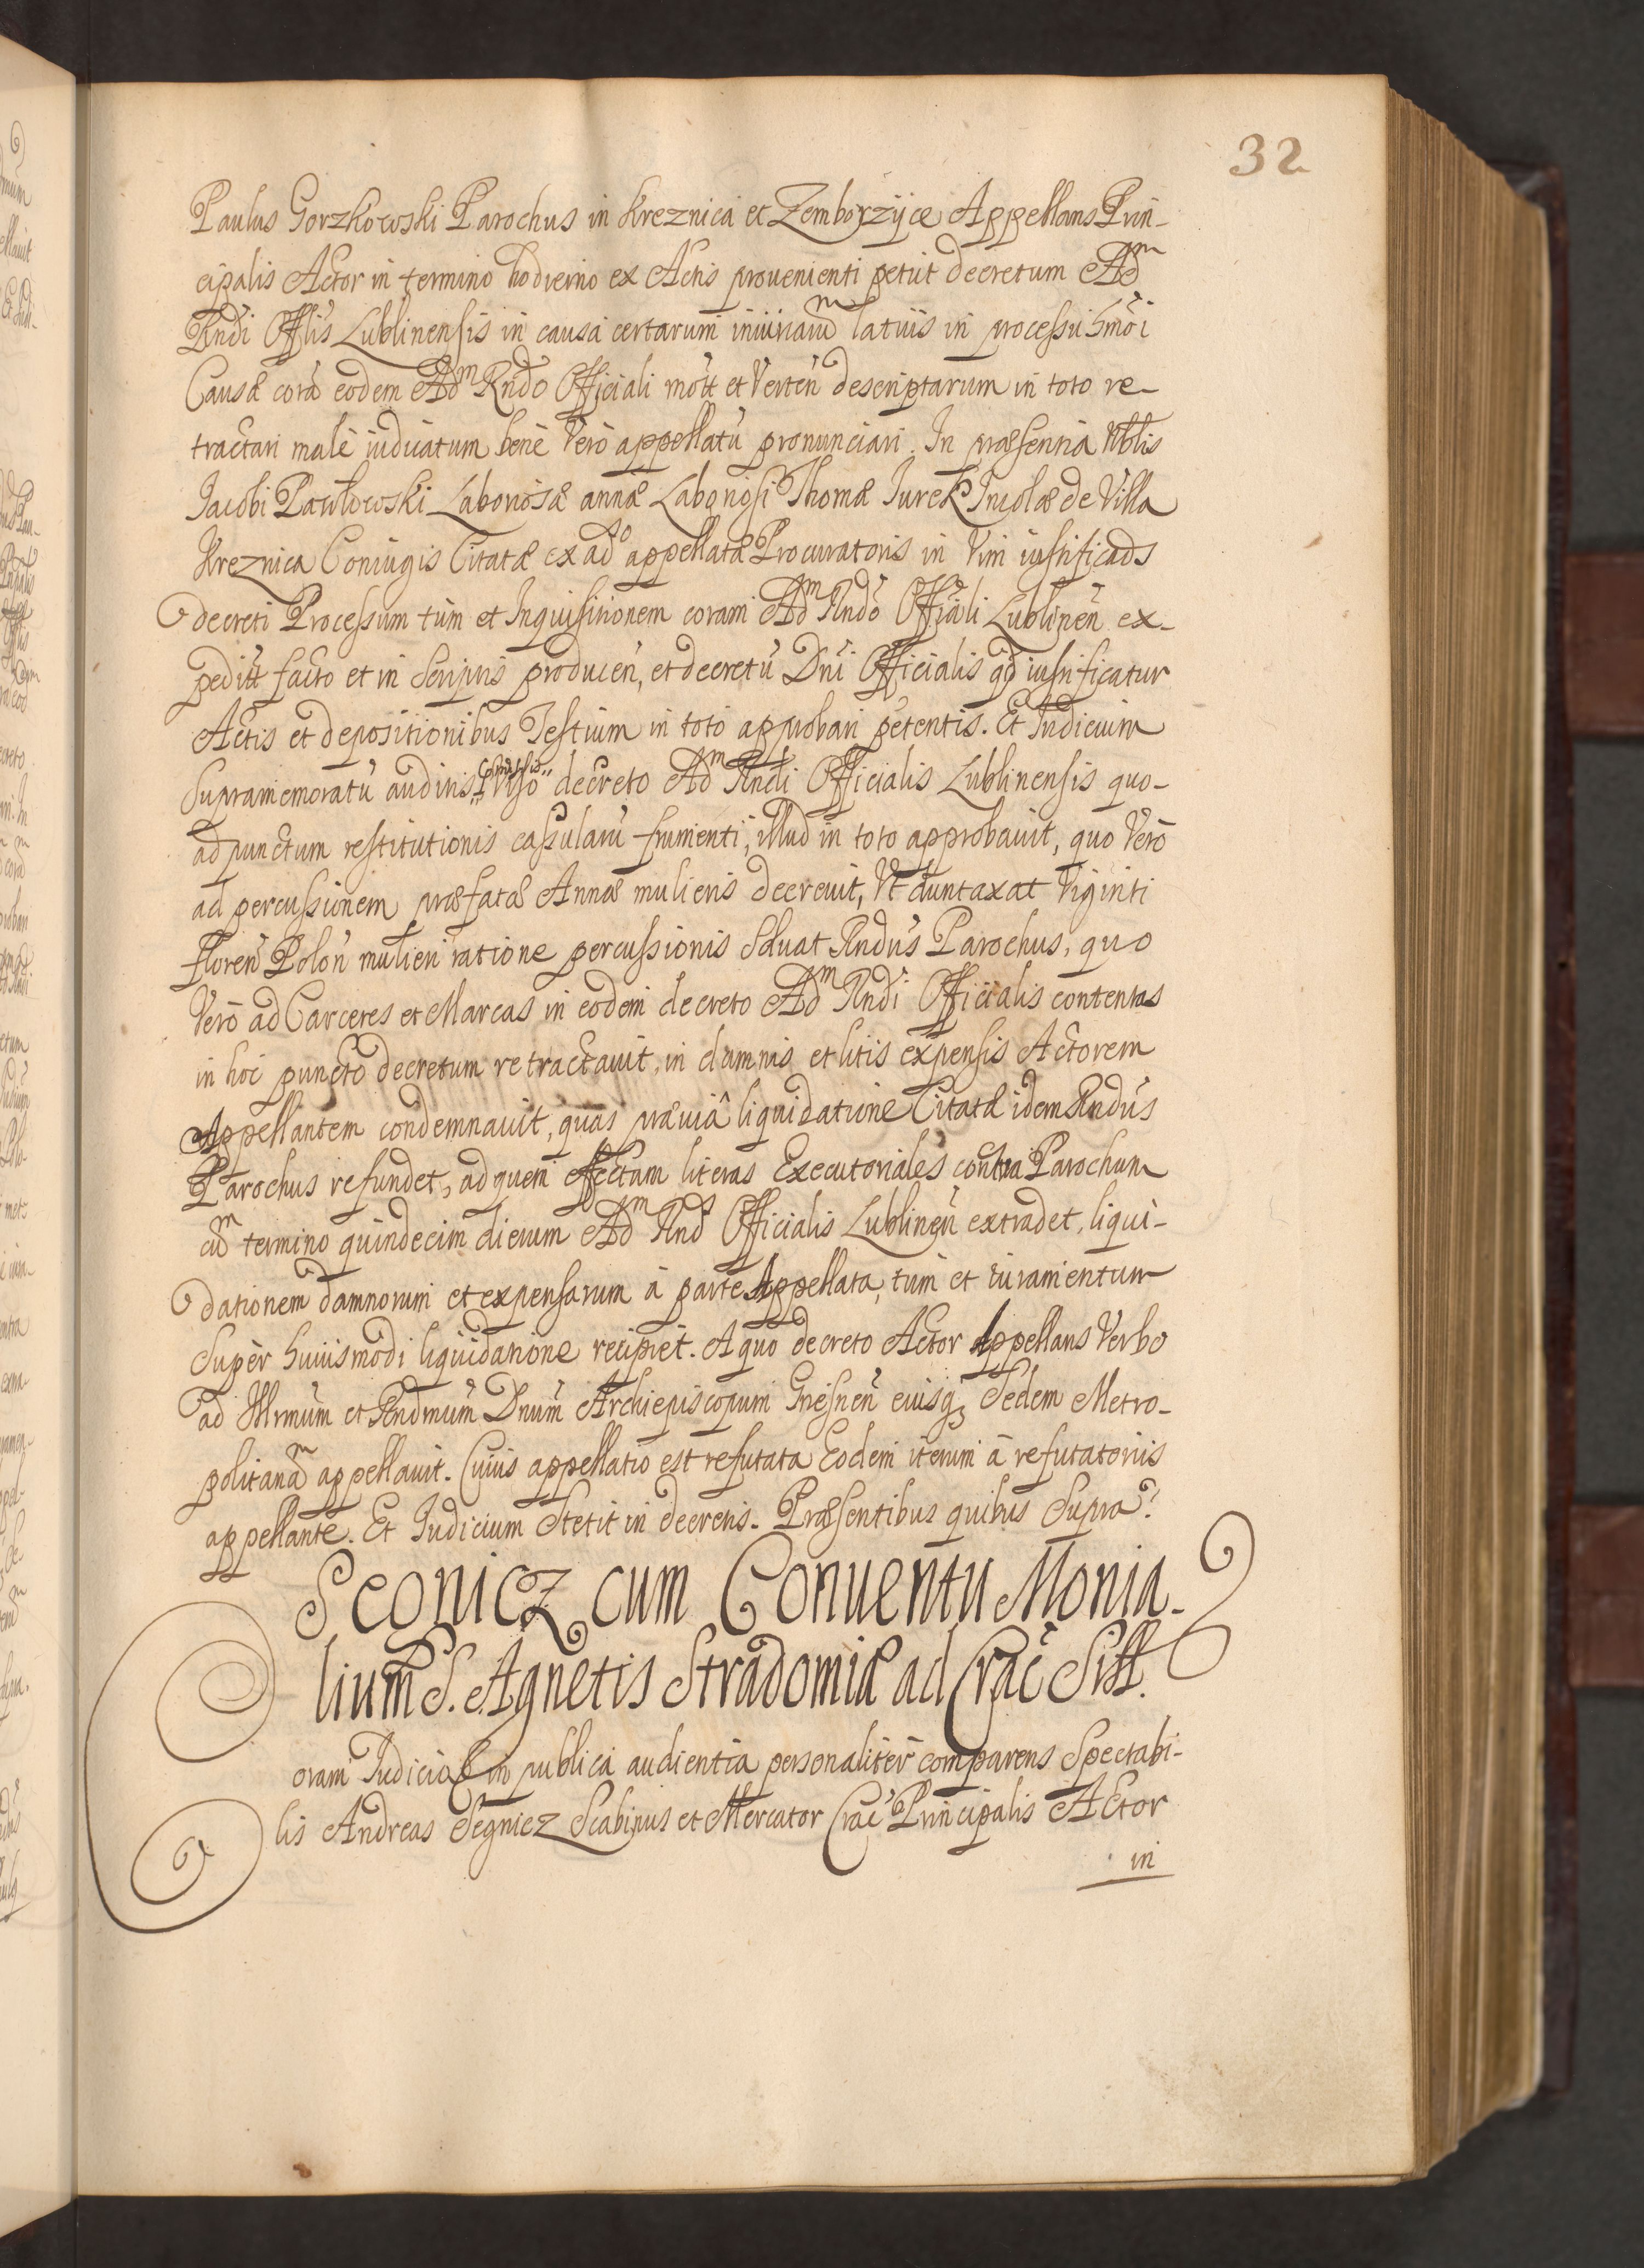 32
Paulus Gorzkowski Parochus in Kreznica et Zemborzyce Appellans Prin-
cipalis Actor in termino hodierno ex Actis prouenienti petiit decretum Adm
Rndi Offlis Lublinensis in causa certarum iniuriarum latiùs in processu hmõi
Causæ corã eodem Adm Rndo Officiali mõtt et Verteñ descriptarum in toto re-
tractari malè iudicatum benè Verò appellatũ pronunciari. In præsentia Nblis
Jacobi Pawlowski Laboriosæ annæ Laboriosi Thomæ Jurek Incolæ de Villa
Kreznica Coniugis Citatæ ex ado appellatæ Procuratoris in Vim iustificaõs
decreti Processum tùm et Inquisitionem coram Adm Rndo Offiãli Lublineñ ex-
peditt facto et in scriptis produceñ, et decretũ Dni Officialis qd iustificatur
Actis et depositionibus Testium in toto approbari petentis. Et Iudicium
Supramemoratũ auditis Viso decreto Adm Rndi Officialis Lublinensis quo-
ad punctum restitutionis capsularũ frumenti, illud in toto approbauit, quo Verò
ad percussionem præfatæ Annæ mulieris decreuit, Vt duntaxat Viginti
floreñ Poloñ mulieri ratione percussionis Soluat Rndus Parochus, quo
Verò ad Carceres et Marcas in eodem decreto Adm Rndi Officialis contentas
in hoc puncto decretum retractauit, in damnis et litis expensis Actorem
Appellantem condemnauit, quas præuiâ liquidatione Citatæ idem Rndus
Parochus refundet, ad quem effectum literas Executoriales contra Parochum
cum termino quindecim dierum Adm Rnds Officialis Lublineñ extradet, liqui-
dationem damnorum et expensarum à parte Appellata, tùm et iuramentum
Supèr huiusmodi liquidatione recipiet. A quo decreto Actor Appellans Verbo
ad Illrmũm et Rndmũm Dnũm Archiepiscopum Gnesneñ eiusq Sedem Metro-
politanam appellauit. Cuius appellatio est refutata Eodem iterum à refutatoriis
appellante. Et Iudicium Stetit in decretis. Præsentibus quibus Supra.
Seonicz cum Conuentu Monia-
lium S. Agnetis Stradomiæ ad Crac̃ Sitt.
oram Iudicio et in publica audientia personalitèr comparens Spectabi-
lis Andreas Segnicz Scabinus et Mercator Crac̃ Principalis Actor
in